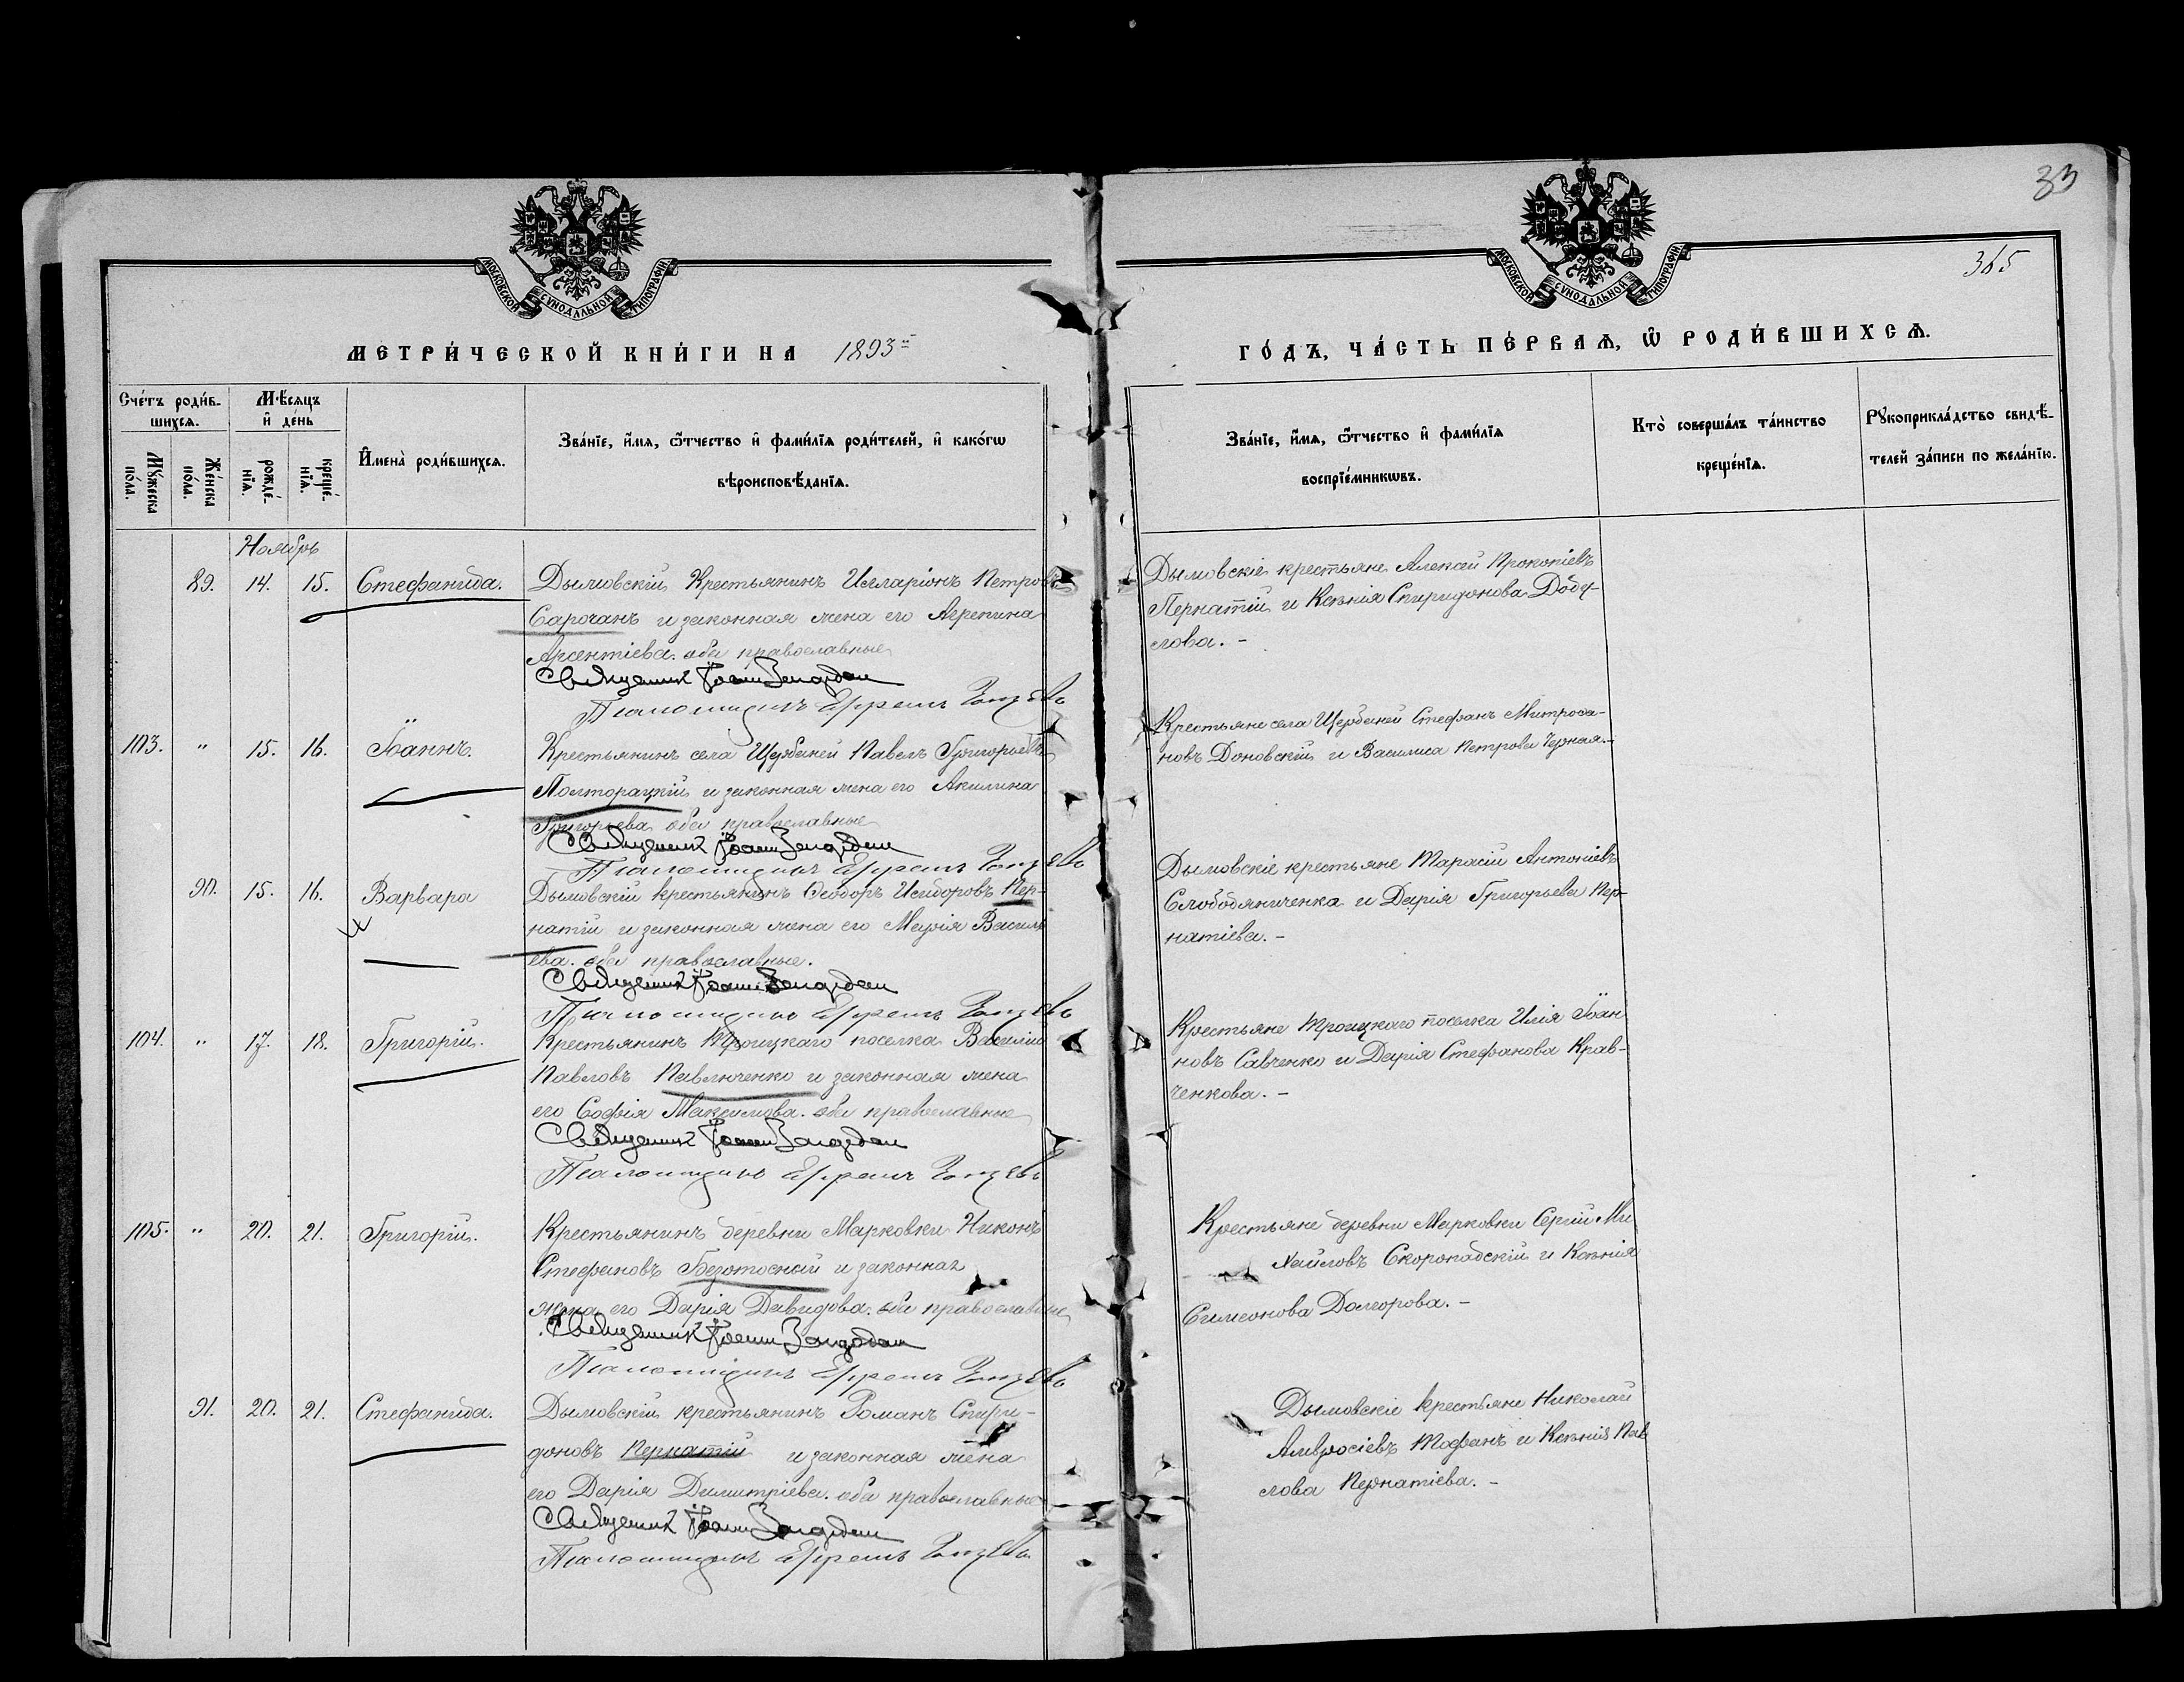 33
365
МОСКОВСКОЙ СѴНОДАЛЬНОЙ ТИПОГРАФІИ.
МОСКОВСКОЙ СѴНОДАЛЬНОЙ ТИПОГРАФІИ.
МЕТРИ́ЧЕСКОЙ КНИ́ГИ НА 1893й
ГО́ДЪ, ЧА́СТЬ ПЕ́РВАѦ, Ѿ РОДИ́ВШИХСѦ.
Сче́тъ роди́в-
шихсѧ.
Мꙋ́жеска
по́ла.
Же́нска
по́ла.
Мѣ́сѧцъ
и҆ де́нь
рожде́-
нїѧ.
креще́-
нїѧ.
И҆мена̀ роди́вшихсѧ.
Зва́нїе, и҆́мѧ, ѻ҆́тчество и҆ фами́лїѧ роди́телей, и҆ како́гѡ
вѣроисповѣ́данїѧ.
Зва́нїе, и҆́мѧ, ѻ҆́тчество и҆ фами́лїѧ
воспрїе́мникѡвъ.
Кто̀ соверша́лъ та́инство
креще́нїѧ.
Рꙋкоприкла́дство свидѣ́-
телей за́писи по жела́нїю.
Ноябрь
89. 14. 15. Стефанида.
Дымовскій Крестьянинъ Илларіонъ Петровъ
Сарочанъ и законная жена его Агрепина
Арсентіева. оба православные
Священник Іоанн
Псаломщикъ Ефремъ
Дымовскіе крестьяне Алексѣй Прокопіевъ
Пернатій и Ксенія Спиридонова Добу-
лова. -
103. " 15. 16. Іоаннъ.
Крестьянинъ села Щербаней Павелъ Григорьевъ
Полторацкій и законная жена его Акилина
Григорьева оба православные
Священник Іоанн
Псаломщикъ Ефремъ
Крестьяне села Щербаней Стефанъ Митрофа-
новъ Доновскій и Василиса Петрова Черная.-
90. 15. 16. Варвара
Дымовскій крестьянинъ Ѳеодоръ Исидоровъ Пер-
натій и законная жена его Марія Василь
ева. оба православные.
Священник Іоанн
Псаломщикъ Ефремъ
Дымовскіе крестьяне Тарасій Антоніевъ
Слободяниченка и Дарія Григорьева Пер-
натіева. -
104. " 17. 18. Григорій.
Крестьянинъ Троицкаго поселка Василій
Павловъ Павлюченко и законная жена
его Софія Максимова. оба православные
Священник Іоанн
Псаломщикъ Ефремъ
Крестьяне Троицкаго поселка Илія Іоан
новъ Савченко и Дарія Стефанова Крав-
ченкова. -
105. " 20. 21. Григорій.
Крестьянинъ деревни Марковки Никонъ
Стефановъ Безотосный и законная
жена его Дарія Давидова. оба православные
Священник Іоанн
Псаломщикъ Ефремъ
Крестьяне деревни Марковки Сергій Ми
хаиловъ Скоропадскій и Ксенія
Симеонова Долгорова. -
91. 20. 21. Стефанида.
Дымовскій крестьянинъ Романъ Спири-
доновъ Пернатій и законная жена
его Дарія Димитріева. оба православные
Священник Іоанн
Псаломщикъ Ефремъ
Дымовскіе крестьяне Николай
Амвросіевъ Тофанъ и Ксенія Пав
лова Пернатіева. -